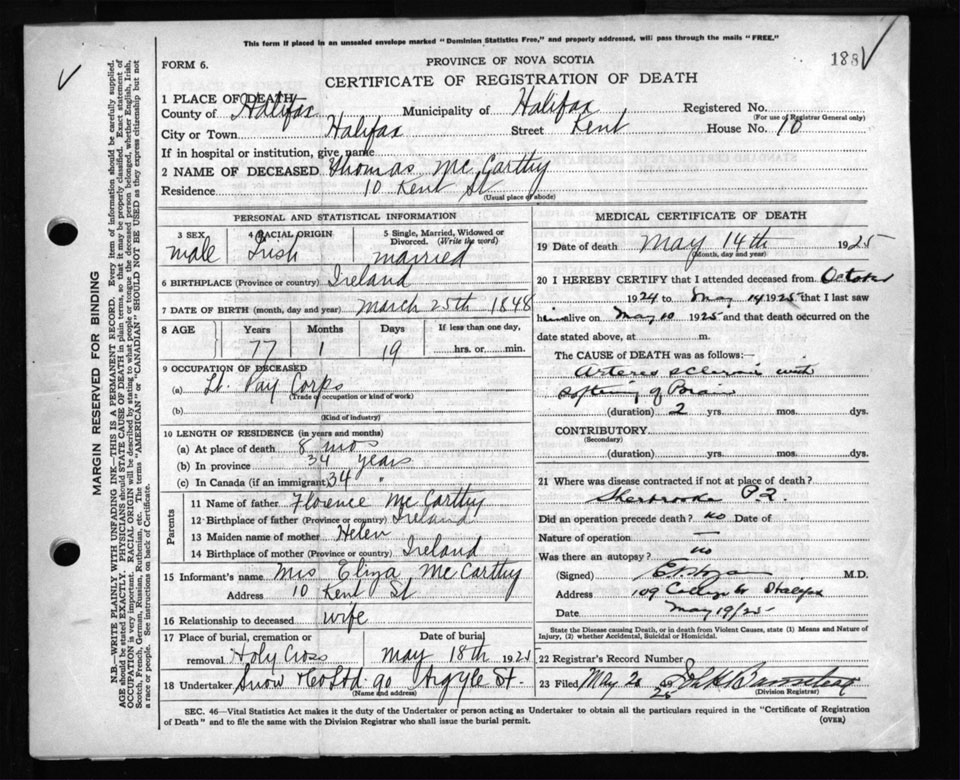 This form if placed in an unsealed envelope marked "Dominion Statistics Free," and properly addressed, will pass through the mails "FREE."
188
FORM 6.
PROVINCE OF NOVA SCOTIA
CERTIFICATE OF REGISTRATION OF DEATH
1 PLACE OF DEATH
County of Halifax Municipality of Halifax Registered No.
(For use of Registrar General only)
City or Town Halifax Street Kent House No. 10
If in hospital or institution, give name
2 NAME OF DECEASED Thomas McCarthy
Residence 10 Kent St
(Usual place of abode)
PERSONAL AND STATISTICAL INFORMATION
3 SEX male
4 RACIAL ORIGIN Irish
5 Single, Married, Widowed or Divorced. (Write the word) married
6 BIRTHPLACE (Province or country) Ireland
7 DATE OF BIRTH (month, day and year) March 25th 1848
8 AGE Years Months Days If less than one day,
77 1 19 hrs. or min.
9 OCCUPATION OF DECEASED
(a) Lt. Pay Corps
(Trade or occupation or kind of work)
(b)
(Kind of industry)
10 LENGTH OF RESIDENCE (in years and months)
(a) At place of death 8 mos
(b) In province 34 years
(c) In Canada (if an immigrant) 34 "
Parents
11 Name of father Florence McCarthy
12 Birthplace of father (Province or country) Ireland
13 Maiden name of mother Helen
14 Birthplace of mother (Province or country) Ireland
15 Informant's name Mrs Eliza McCarthy
Address 10 Kent St
16 Relationship to deceased wife
17 Place of burial, cremation or removal Holy Cross Date of burial May 18th 1925
18 Undertaker Snow & Co Ltd 90 Argyle St.
(Name and address)
MEDICAL CERTIFICATE OF DEATH
19 Date of death May 14th 1925
(Month, day and year)
20 I HEREBY CERTIFY that I attended deceased from October
1924 to May 14 1925 that I last saw
him alive on May 10 1925 and that death occurred on the
date stated above, at m.
The CAUSE OF DEATH was as follows:—
Arterio sclerosis with
softening of Brain
(duration) 2 yrs. mos. dys.
CONTRIBUTORY
(Secondary)
(duration) yrs. mos. dys.
21 Where was disease contracted if not at place of death?
Sherbrooke P.Q.
Did an operation precede death? no Date of
Nature of operation —
Was there an autopsy? no
(Signed) M.D.
Address 109 College St Halifax
Date May 19/25
State the Disease causing Death, or in death from Violent Causes, state (1) Means and Nature of
Injury, (2) whether Accidental, Suicidal or Homicidal.
22 Registrar's Record Number
23 Filed May 20 1925
(Division Registrar)
SEC. 46—Vital Statistics Act makes it the duty of the Undertaker or person acting as Undertaker to obtain all the particulars required in the "Certificate of Registration
of Death" and to file the same with the Division Registrar who shall issue the burial permit.
(OVER)
MARGIN RESERVED FOR BINDING
N.B.—WRITE PLAINLY WITH UNFADING INK—THIS IS A PERMANENT RECORD. Every item of information should be carefully supplied.
AGE should be stated EXACTLY. PHYSICIANS should STATE CAUSE OF DEATH in plain terms, so that it may be properly classified. Exact statement of
OCCUPATION is very important. RACIAL ORIGIN will be described by stating to what people or tongue the deceased person belonged, whether English, Irish,
Scotch, French, German, Russian, Ruthenian, etc. The terms "AMERICAN" or "CANADIAN" SHOULD NOT BE USED as they express citizenship but not
a race or people. See instructions on back of Certificate.